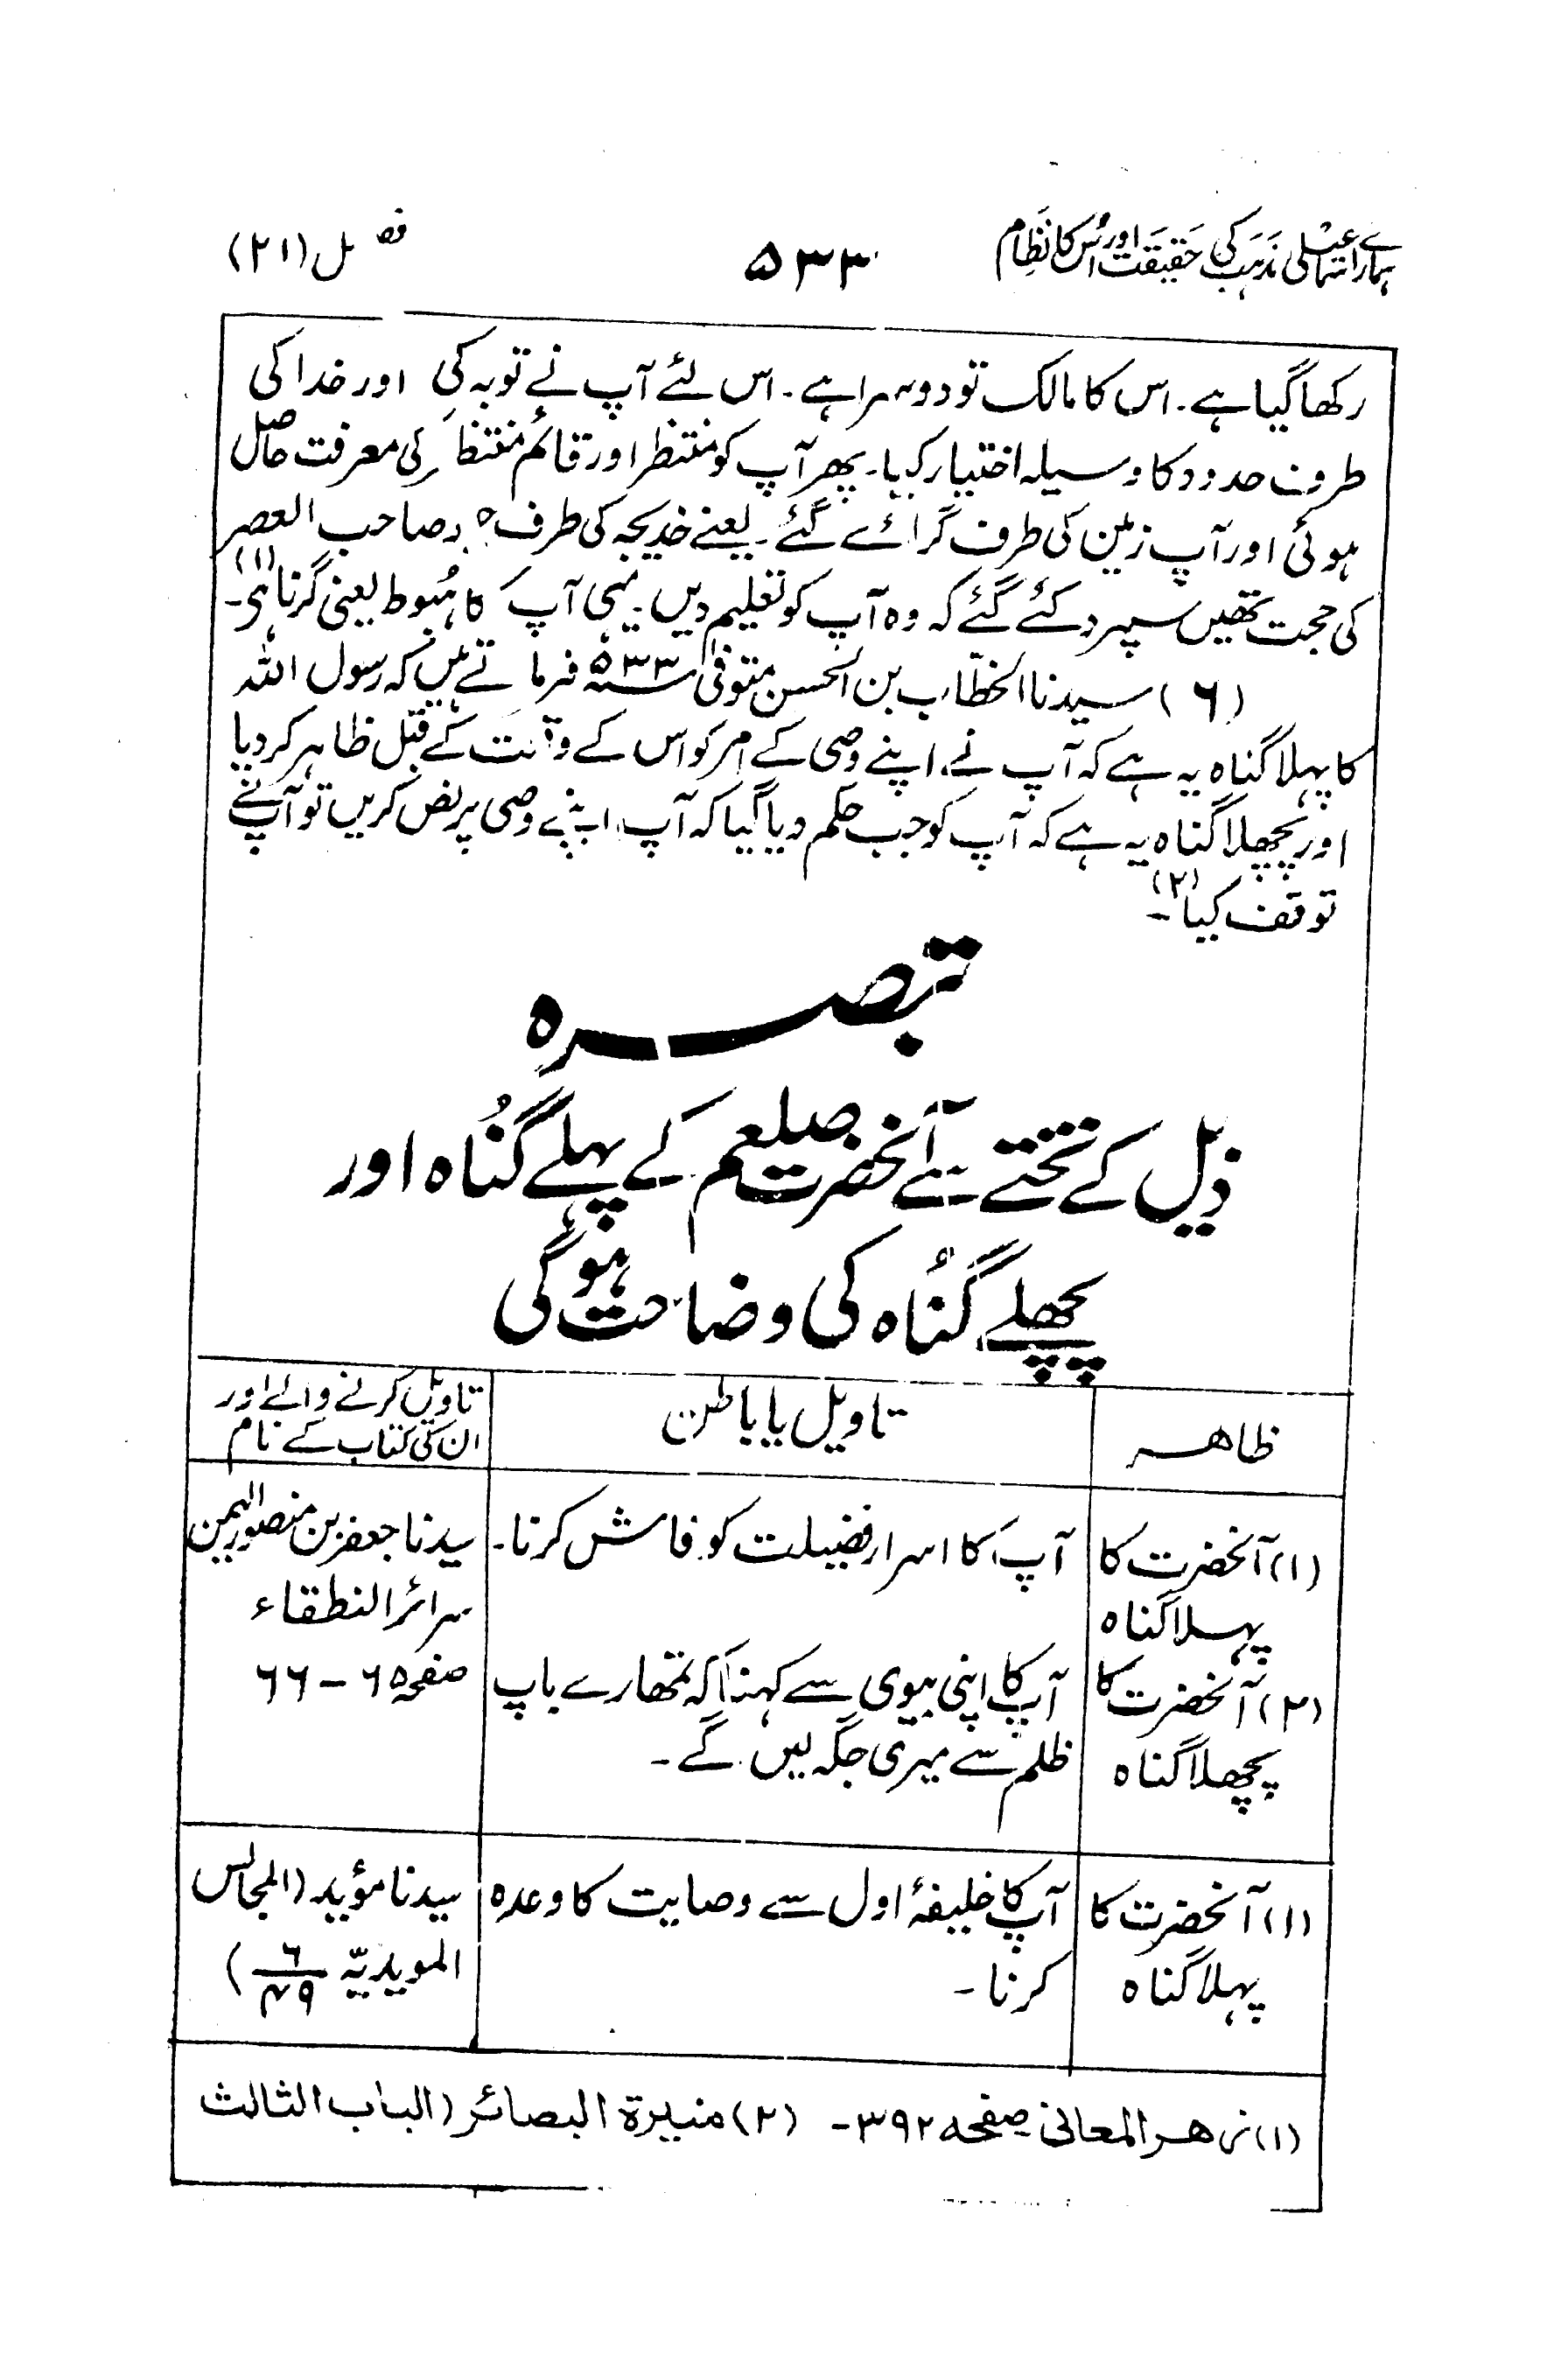 ہمارے اسماعیلی مذہب کی حقیقت اور اُس کا نظام
۵۳۳
فصل (۲۱)
رکھا گیا ہے۔ اس کا مالک تو دوسرا ہے۔ اس لئے آپ نے توبہ کی اور خدا کی
طرف حدود کا وسیلہ اختیار کیا۔ پھر آپ کو منتظر اور قائم منتظر کی معرفت حاصل
ہوئی اور آپ زمین کی طرف گرائے گئے۔ یعنے خدیجہ کی طرف جو صاحب العصر
کی حجت تھیں سپرد کئے گئے کہ وہ آپ کو تعلیم دیں۔ یہی آپ کا ہُبوط یعنی گرنا ہی (۱)۔
(۶) سیدنا الخطّاب بن الحسن متوفی ۵۳۳؁ فرماتے ہیں کہ رسول اللہ
کا پہلا گناہ یہ ہے کہ آپ نے اپنے وصی کے امر کو اس کے وقت کے قبل ظاہر کردیا
اور پچھلا گناہ یہ ہے کہ آپ کو جب حکم دیا گیا کہ آپ اپنے وصی پر نص کریں تو آپ نے
توقف کیا (۲)۔
تبصرہ
ذیل کے تختے سے آنحضرت صلعم کے پہلے گُناہ اور
پچھلے گُناہ کی وضاحت ہوگی
ظاہر
تاویل یا باطن
تاویل کرنے والے اور
ان کی کتاب کے نام
(۱) آنحضرت کا
پہلا گناہ
آپ کا اسرار فضیلت کو فاش کرنا۔
سیدنا جعفر بن منصور الیمن
سرائر النطقاء
صفحہ ۶۵ - ۶۶
(۲) آنحضرت کا
پچھلا گناہ
آپ کا اپنی بیوی سے کہنا کہ تمھارے باپ
ظلم سے میری جگہ لیں گے۔
(۱) آنحضرت کا
پہلا گناہ
آپ کا خلیفۂ اول سے وصایت کا وعدہ
کرنا۔
سیدنا مؤید (المجالس
المویدیّہ ۶/۴۹)
(۱) زھر المعانی صفحہ ۳۹۲۔ (۲) منیرۃ البصائر (الباب الثالث